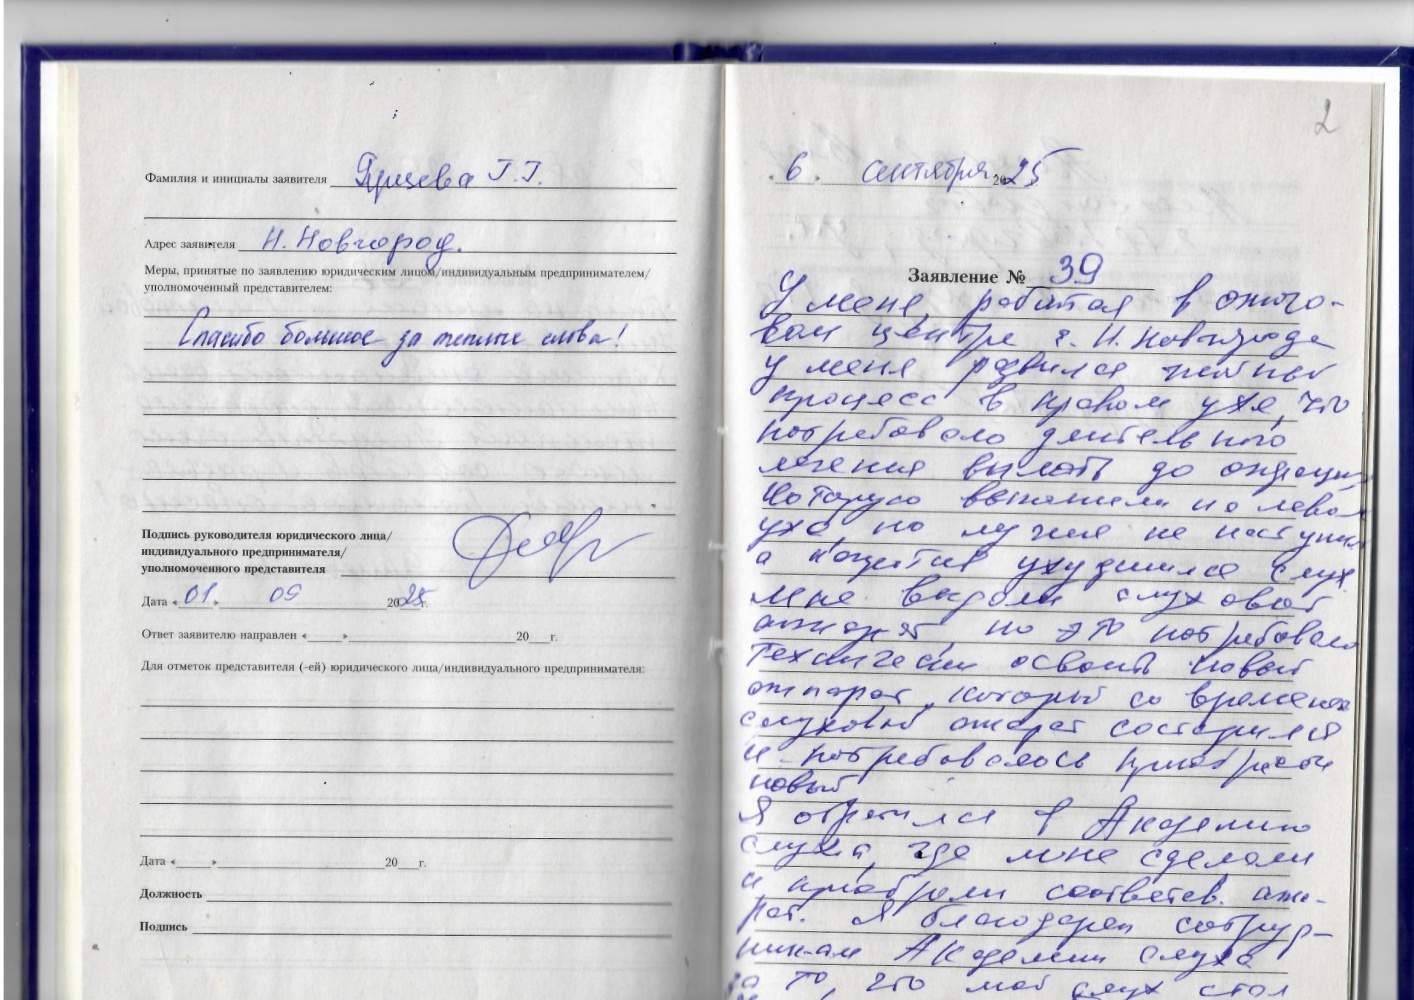 Фамилия и инициалы заявителя Г.Г.
Адрес заявителя Н. Новгород.
Меры, принятые по заявлению юридическим лицом/индивидуальным предпринимателем/
уполномоченный представителем:
Спасибо большое за теплые слова!
Подпись руководителя юридического лица/
индивидуального предпринимателя/
уполномоченного представителя
Дата «01» 09 2025г.
Ответ заявителю направлен «____»____20__г.
Для отметок представителя (-ей) юридического лица/индивидуального предпринимателя:
Дата «____»____20__г.
Должность
Подпись
2
6. сентября 2025
Заявление № 39
У меня, работая в ожого-
вом центре г. Н. Новгорода
у меня развился гнойный
процесс в правом ухе, что
потребовало длительного
лечения вплоть до операции
которую выполнили на левом
ухе, но лучше не наступило
а позитив ухудшился слух.
Мне выдали слуховой
аппарат, но это потребовало
технически освоить новый
аппарат, который со временем
слуховой апарат состарился
и потребовалось приобрести
новый
Я обратился в Академию
слуха, где мне сделали
и приобрели соответств. аппа-
рат. Я благодарен сотруд-
никам Академии слуха
за то, что мой слух стал